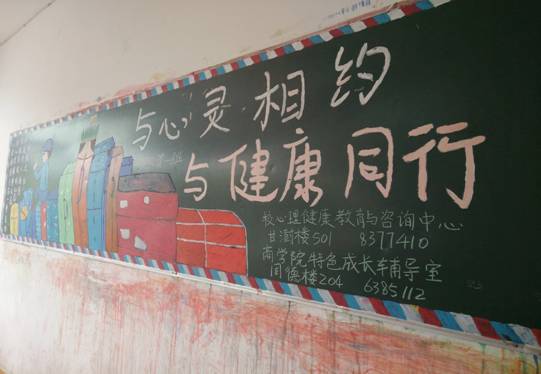 与心灵相约
与健康同行
校心理健康教育与咨询中心
甘澍楼501 8377410
商学院特色成长车辅导室
同德楼204 6385112